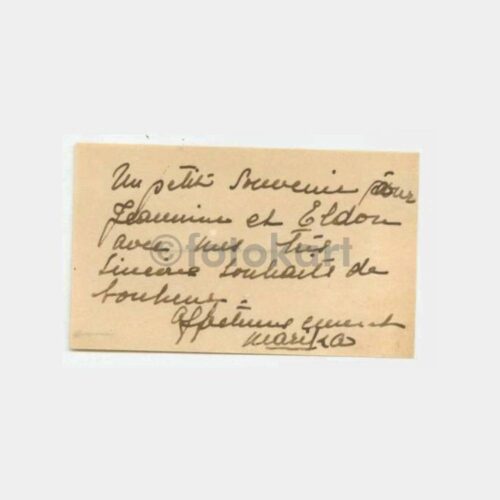 Un petit Souvenir pour
Jeannine et Eldon
avec mes très
sincères souhaits de
bonheur.
Affectueusement
Marika
©fotokart